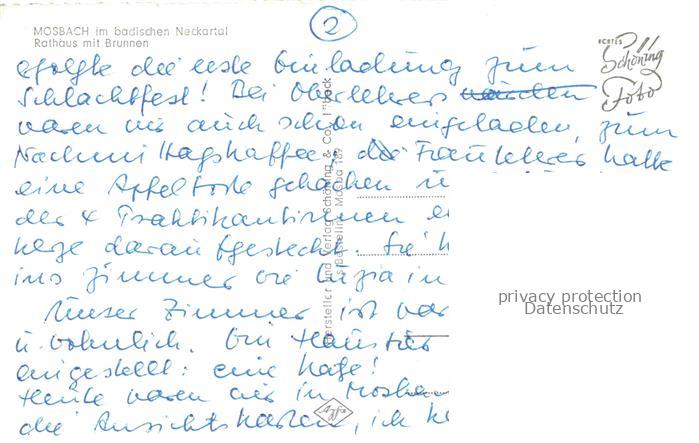 MOSBACH im badischen Neckartal
Rathaus mit Brunnen
2
ECHTES
Schöning
Foto
erfolgte die erste Einladung zum
Schlachtfest! Bei Oberlehrers
waren wir auch schon eingeladen, zum
Nachmittagskaffee, die Frau Lehrer hatte
eine Apfeltorte gebacken u
der 4 Praktikantinnen
kerze daraufgesteckt. Sie
ins Zimmer wie Luzia in
Unser Zimmer ist
u. wohnlich. Ein Haustier
eingestellt: eine Katze!
Heute waren wir in Mosba
die Ansichtskarten, ich
Hersteller und Verlag Schöning & Co., Lübeck
Agfa
privacy protection
Datenschutz